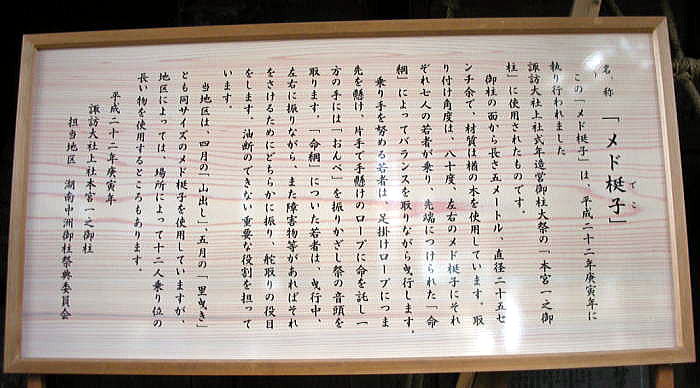 名称 「メド梃子」
でこ
この「メド梃子」は、平成二十二年庚寅年に
執り行われました
諏訪大社上社式年造営御柱大祭の「本宮一之御
柱」に使用されたものです。
御柱の面から長さ五メートル、直径二十五セ
ンチ余で、材質は楢の木を使用しています。取
り付け角度は、八十度、左右のメド梃子にそれ
ぞれ七人の若者が乗り、先端につけられた「命
綱」によってバランスを取りながら曳行します。
乗り手を努める若者は、足掛けロープにつま
先を懸け、片手で手懸けロープに命を託し一
方の手には「おんべ」を振りかざし祭の音頭を
取ります。「命綱」についた若者は、曳行中、
左右に振りながら、また障害物等があればそれ
をさけるためにどちらかに振り、舵取りの役目
をします。油断のできない重要な役割を担って
います。
当地区は、四月の「山出し」、五月の「里曳き」
とも同サイズのメド梃子を使用していますが、
地区によっては、場所によって十二人乗り位の
長い物を使用するところもあります。
平成二十二年庚寅年
諏訪大社上社本宮一之御柱
担当地区 湖南中洲御柱祭典委員会